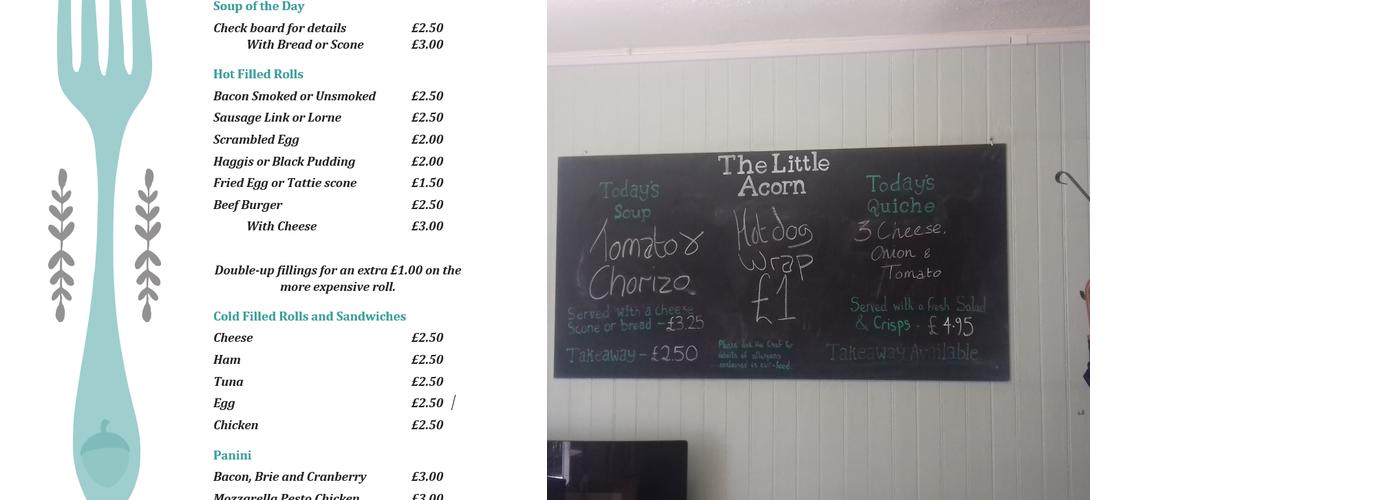 Soup of the Day
Check board for details £2.50
With Bread or Scone £3.00
Hot Filled Rolls
Bacon Smoked or Unsmoked £2.50
Sausage Link or Lorne £2.50
Scrambled Egg £2.00
Haggis or Black Pudding £2.00
Fried Egg or Tattie scone £1.50
Beef Burger £2.50
With Cheese £3.00
Double-up fillings for an extra £1.00 on the
more expensive roll.
Cold Filled Rolls and Sandwiches
Cheese £2.50
Ham £2.50
Tuna £2.50
Egg £2.50 /
Chicken £2.50
Panini
Bacon, Brie and Cranberry £3.00
Mozzarella Pesto Chicken £3.00
The Little
Acorn
Today's
Soup
Tomato &
Chorizo
Served with a cheese
Scone or bread - £3.25
Takeaway - £2.50
Hot dog
Wrap
£1
Please ask the Chef for
details of allergens
contained in our food.
Today's
Quiche
3 Cheese,
Onion &
Tomato
Served with a fresh Salad
& Crisps - £4.95
Takeaway Available